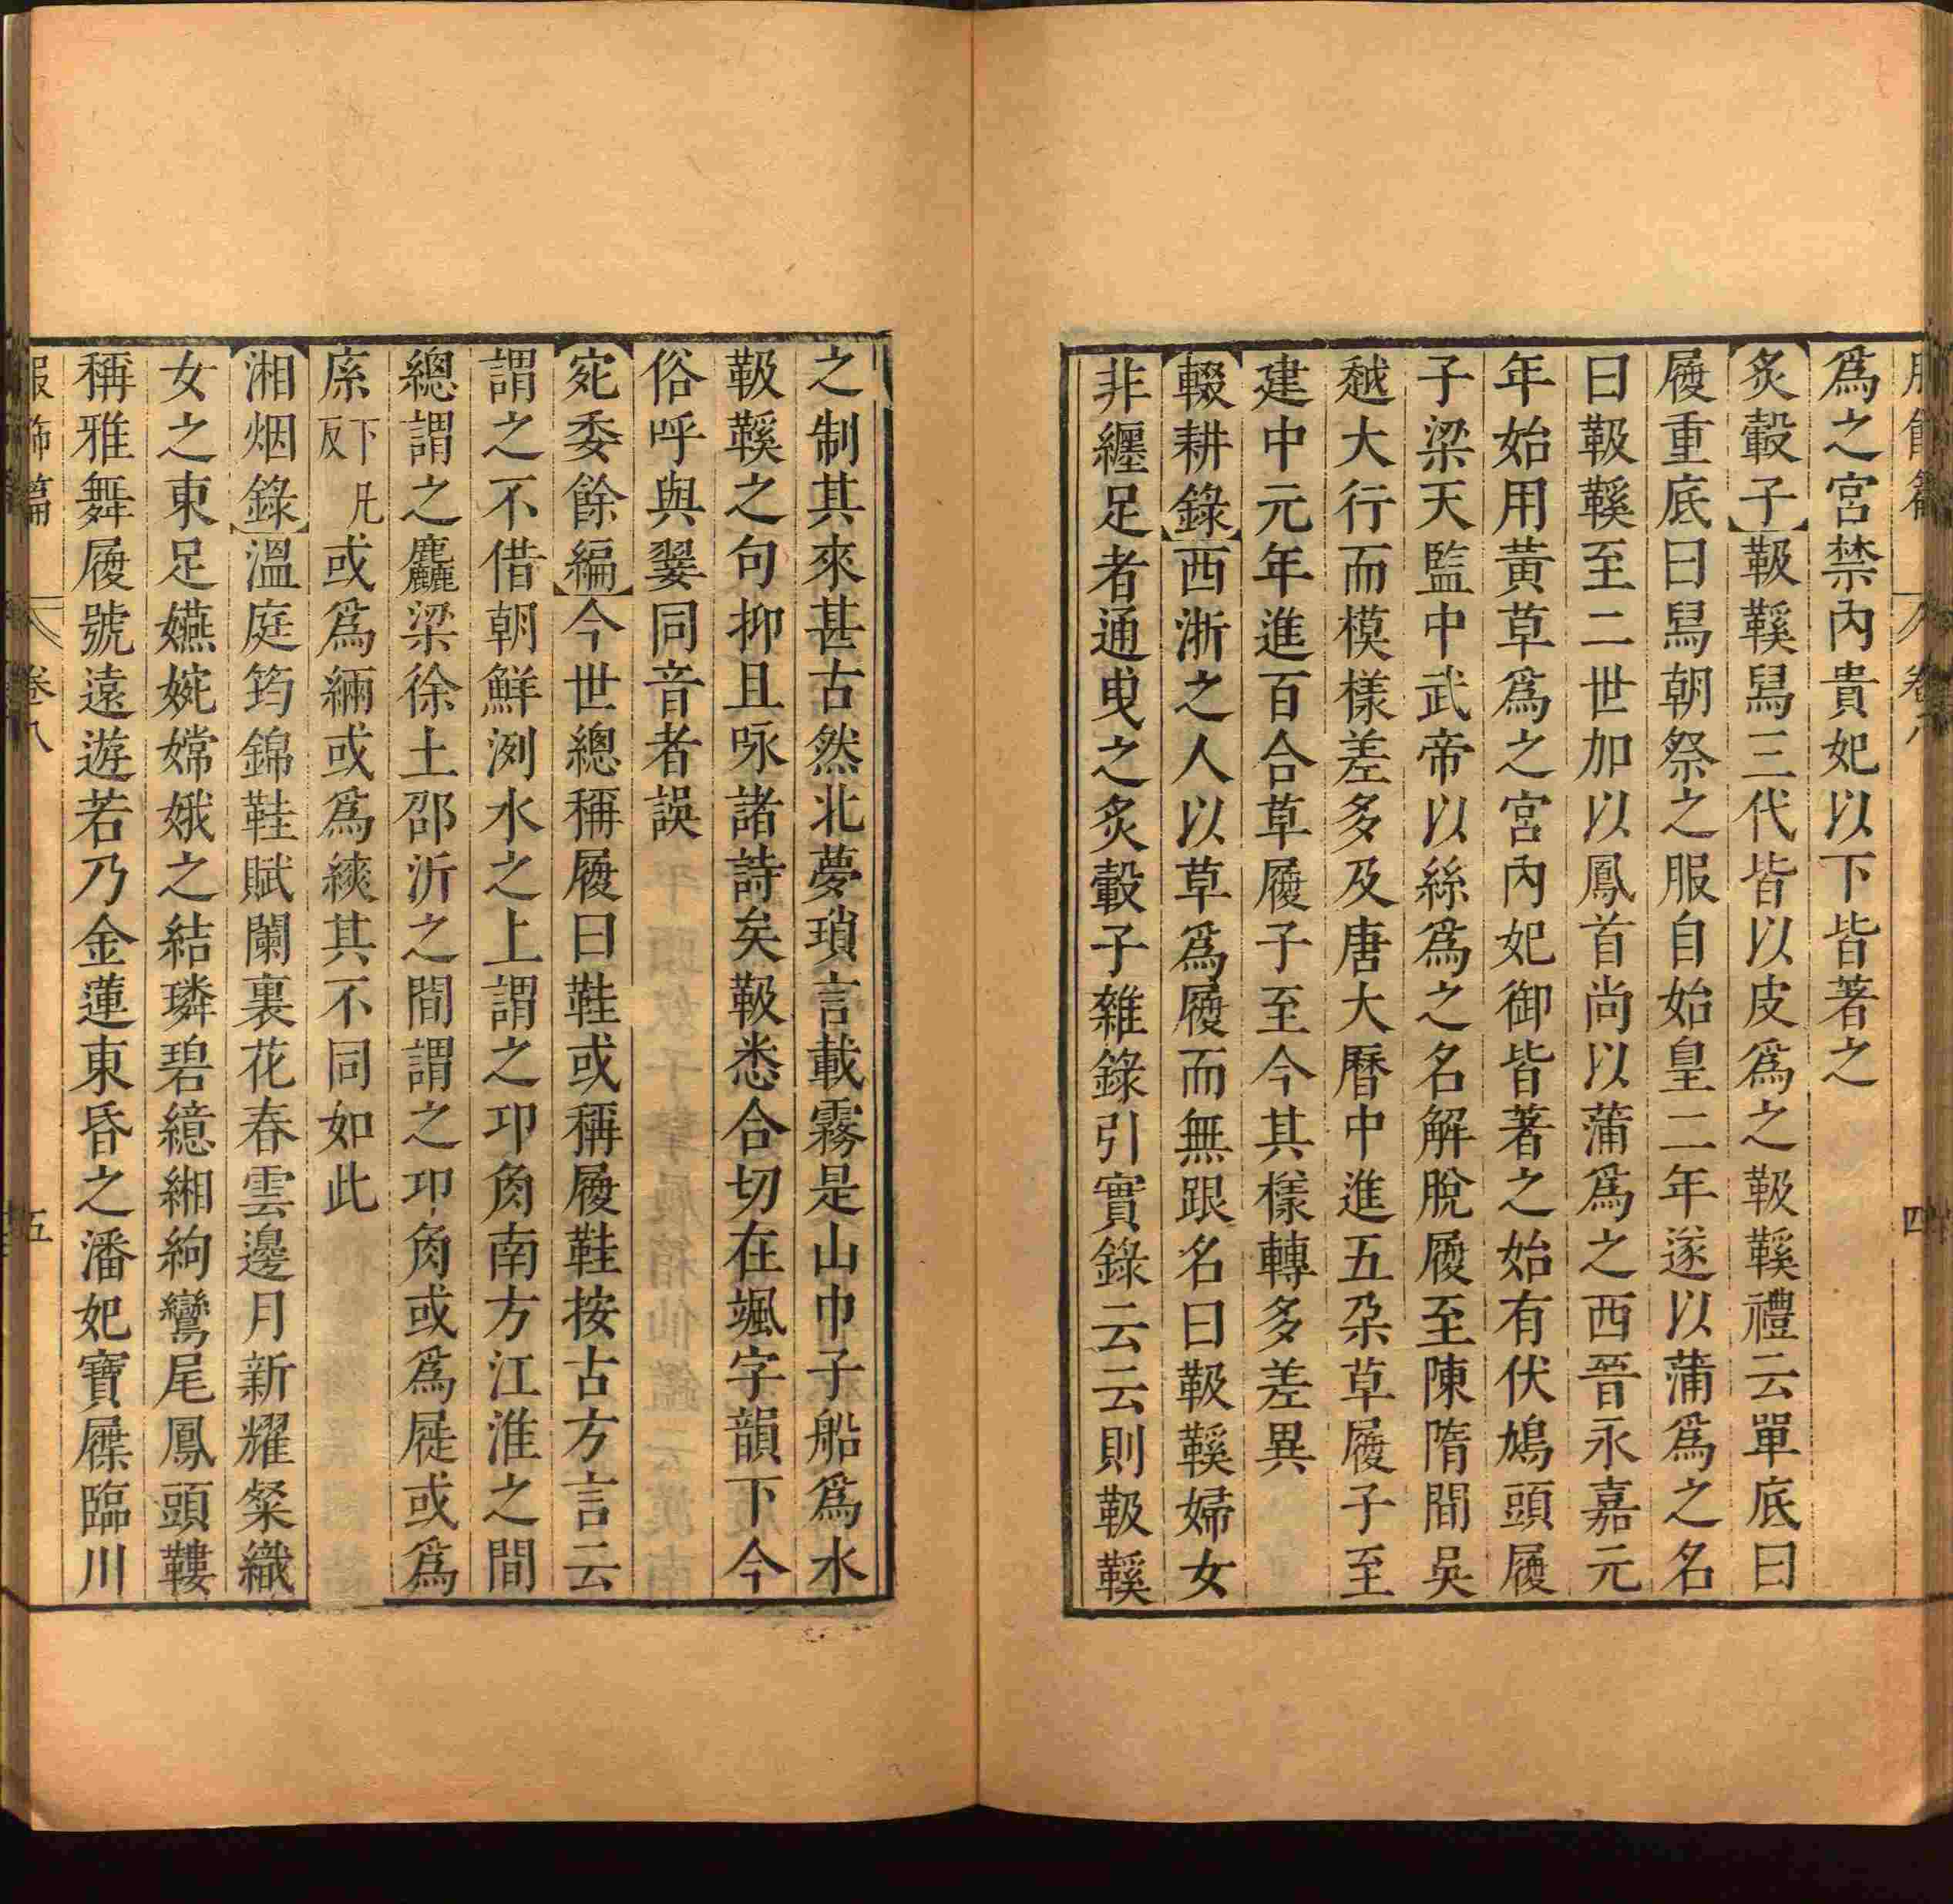 服飾篇 卷八 四
爲之宮禁內貴妃以下皆著之
炙轂子靸鞵舄三代皆以皮爲之靸鞵禮云單底曰
履重底曰舄朝祭之服自始皇二年遂以蒲爲之名
曰靸鞵至二世加以鳳首尚以蒲爲之西晉永嘉元
年始用黃草爲之宮內妃御皆著之始有伏鳩頭履
子梁天監中武帝以絲爲之名解脫履至陳隋間吳
越大行而模樣差多及唐大曆中進五朶草履子至
建中元年進百合草履子至今其樣轉多差異
輟耕錄西浙之人以草爲履而無跟名曰靸鞵婦女
非纏足者通曳之炙轂子雜錄引實錄云云則靸鞵
之制其來甚古然北夢瑣言載霧是山巾子船爲水
靸鞵之句抑且咏諸詩矣靸悉合切在颯字韻下今
俗呼與翣同音者誤
宛委餘編今世總稱履曰鞋或稱履鞋按古方言云
謂之不借朝鮮洌水之上謂之卭角南方江淮之間
總謂之麤梁徐土邳沂之間謂之卭角或爲屣或爲
㡆下凡反或爲緉或爲緛其不同如此
湘烟錄溫庭筠錦鞋賦闌裏花春雲邊月新耀粲織
女之束足嬿婉嫦娥之結璘碧繶緗絇鸞尾鳳頭鞻
稱雅舞履號遠遊若乃金蓮東昏之潘妃寶屧臨川
服飾篇 卷八 五